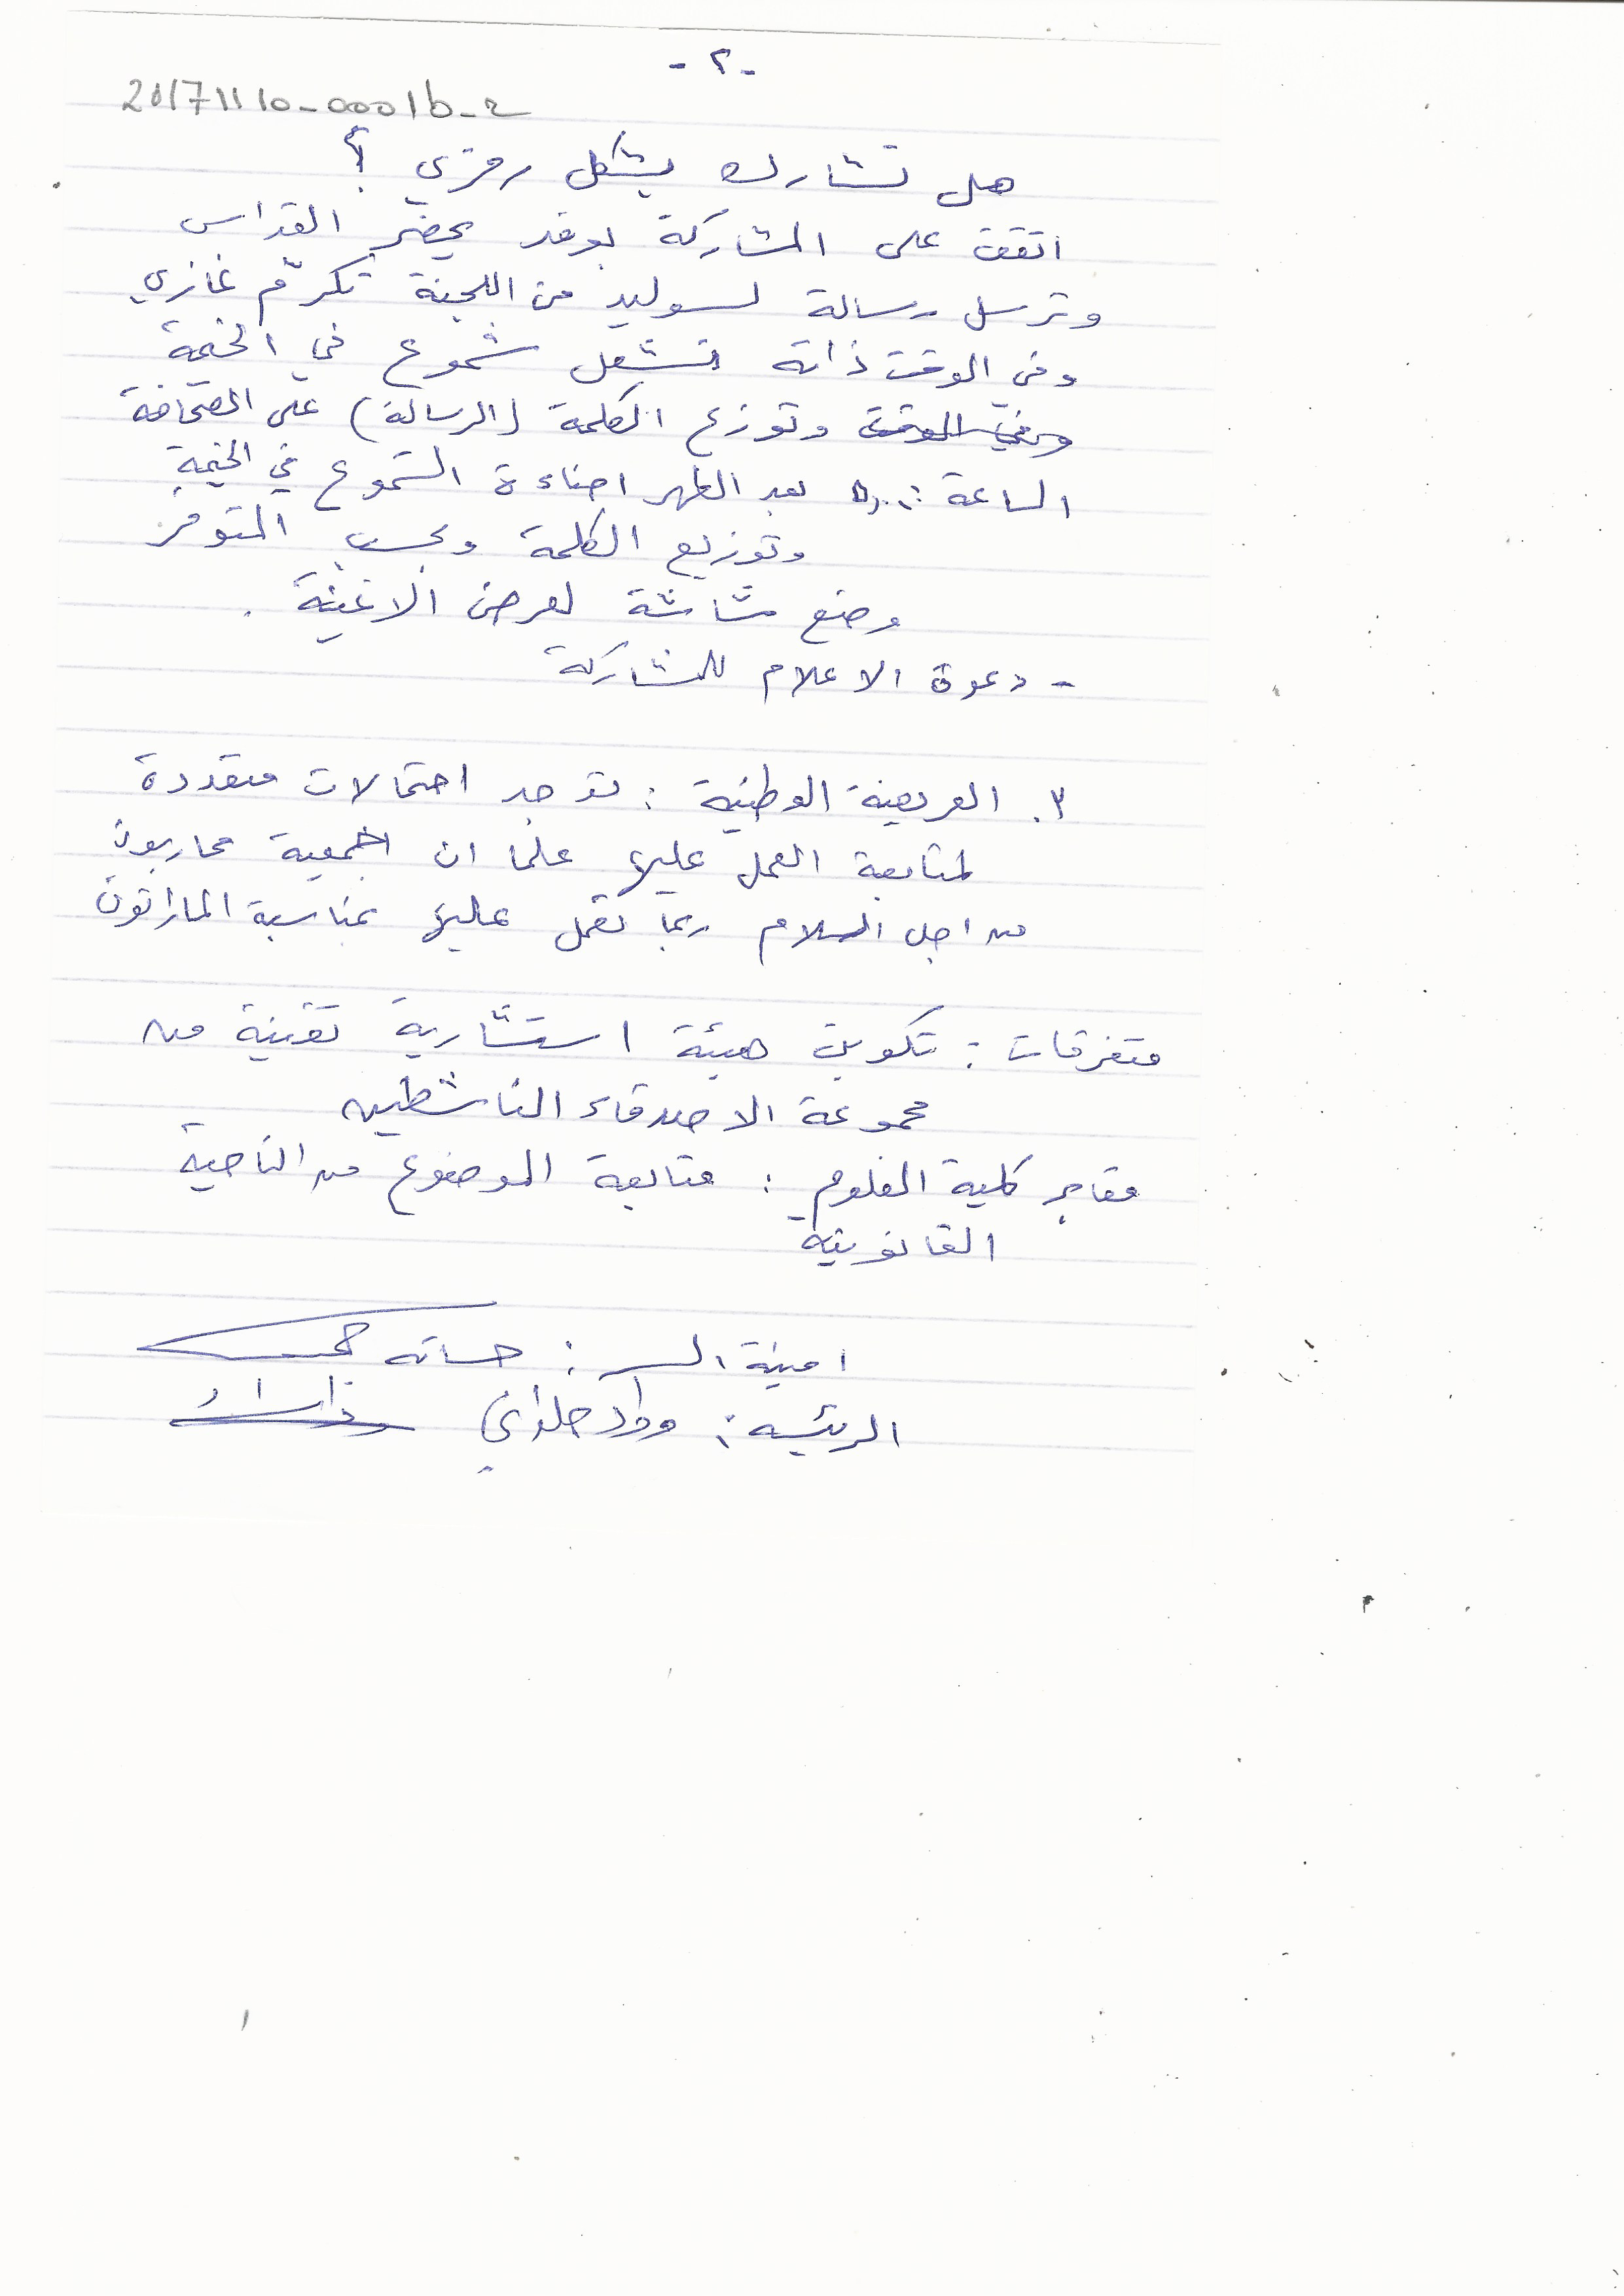 - ٢ -
20171110-0001b-2
هل تشارك بشكل رمزي ؟
اتفق على المشاركة بوفد يحضر القداس
وترسل رسالة لسوليد من اللجنة تكرّم غازي
وفي الوقت ذاته تشعل شموع في الخيمة
وفي الوقت وتوزع الكلمة (الرسالة) على الصحافة
الساعة ٥,٠٠ بعد الظهر اضاءة الشموع في الخيمة
وتوزيع الكلمة وبحسب المتوفر
وضع شاشة لعرض الاغنية .
- دعوة الاعلام للمشاركة
٣. العريضة الوطنية : توجد احتمالات متعددة
لمتابعة العمل عليها علما ان جمعية محاربون
من اجل السلام ربما تعمل عليها بمناسبة الماراتون
متفرقات : تكوين هيئة استشارية تقنية من
مجموعة الاصدقاء الناشطين
مقابر كلية العلوم : متابعة الموضوع من الناحية
القانونية
امينة السر : حسانه
الرئيسه : وداد حلواني